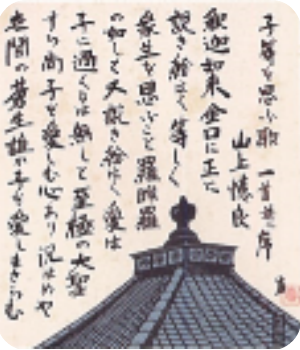 子等を思ふ歌 一首并序
山上憶良
釈迦如来金口に正に
説き給はく等しく
衆生を思ふこと羅睺羅
の如しと又説き給はく愛は
子に過ぐるは無しと至極の大聖
すら尚子を愛しむ心あり況はめや
世間の蒼生誰か子を愛しまざらむ